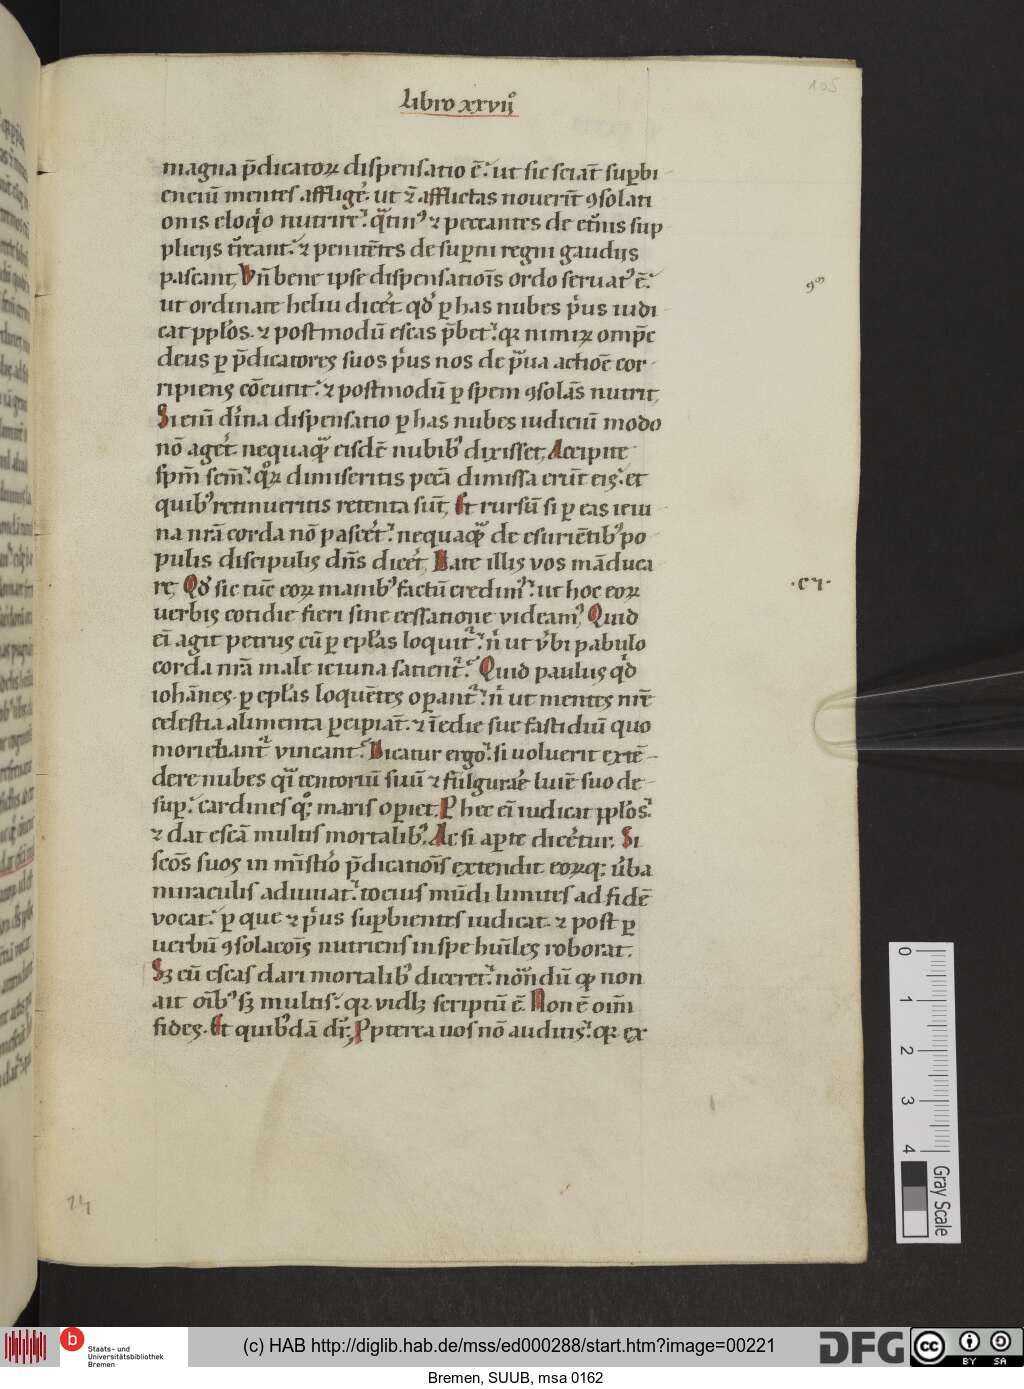 Libro xxvii°
105
magna p̄dicatoꝝ dispensatio ē. ut sic sciāt suꝑbi
enciū mentes affligeř. ut ⁊ afflictas noueriт̄ ꝯsolati
onis eloqͦo nutrire. qͣtinꝰ ⁊ peccantes de et̄nis sup
plicijs t̄reant. ⁊ penitētes de suꝑni regni gaudijs
pascant. Vn̄ bene ipse dispensatiōis ordo seruatꝰ ē.
ut ordinate heliu dicet. qd̓ ꝑ has nubes pͥus iudi
cat ppl̓os. ⁊ postmodū escas p̄bet. qꝛ nimiꝝ omp̄c
deus ꝑ p̄dicatores suos pͥus nos de pͣua actiōe cor
ripiens cōcutit. ⁊ postmodū ꝑ spem ꝯsolās nutrit.
Si eni ū diͥna dispensatio ꝑ has nubes iudiciū modo
nō aget. nequaqͣ eisdē nubibꝰ dixisset. Accipite
spm̄ scm̄. qͦꝝ dimiseritis pcc̄a dimissa erūt eis. et
quibꝰ retinueritis retenta sūt. Et rursū si ꝑ eas ieiu
na nr̄a corda nō pasceͤt. nequaqͣ de esuriētibꝰ po
pulis discipulis dn̄s diceͤt. Date illis vos māduca
re. Qd̓ sic tūc eoꝝ manibꝰ factū credimꝰ. ut hoc eoꝝ
uerbis cotidie fieri sine cessatione videamꝰ. Quid
ei̅ agit petrus cū ꝑ epl̓as loquitᷣ. nͥ ut v̓bi pabulo
corda nr̄a male ieiuna sacientᷣ. Quid paulus qͥd
iohānes. ꝑ epl̓as loquētes oꝑantᷣ. nͥ ut mentes nrē
celestia alimenta ꝑcipiāt. ⁊ īedie sue fastidiū quo
moriebantᷣ vincant. Dicatur ergo. si uoluerit extē
dere nubes qͣi tentoriū suū ⁊ fulgurare lumiē suo de
suꝑ. cardines qͦꝫ maris oꝑiet. P hec ei̅ iudicat ppl̓os.
⁊ dat escā multis mortalibꝰ. Ac si aꝑte diceͤtur. Si
scōs suos in mīstͥo p̄dicatiōis extendit. eoꝝqꝫ u̓ba
miraculis adiuuat. tocius mūdi limites ad fidē
vocat. ꝑ que ⁊ pͥus suꝑbientes iudicat. ⁊ post ꝑ
uerbū ꝯsolacōis nutriens in spe huīles roborat.
Sꝫ cū escas dari mortalibꝰ diceret. non̄dū qͦ non
ait oībꝰ sꝫ multis. qꝛ vidlꝫ scriptū ē. Non ē oim̄
fides. Et quibꝰdā dr̄. Ppterea uos nō auditis. qꝛ ex
·C·I·
14
0
1
2
3
4
Gray Scale
b
Staats- und
Universitätsbibliothek
Bremen
(c) HAB http://diglib.hab.de/mss/ed000288/start.htm?image=00221
DFG
cc
BY SA
Bremen, SUUB, msa 0162